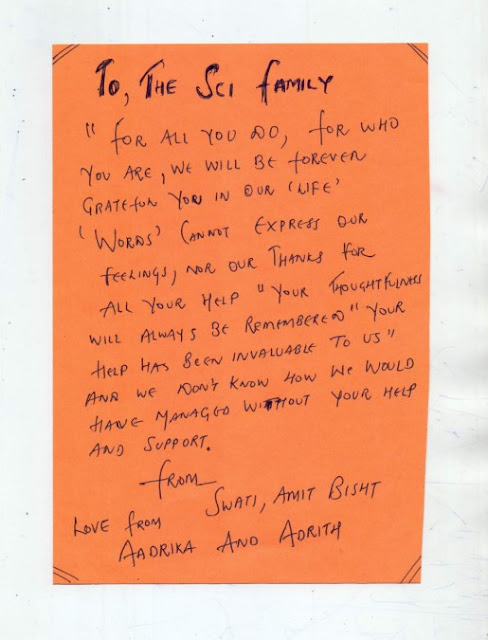 To, THE SCI FAMILY
" FOR ALL YOU DO, FOR WHO
YOU ARE, WE WILL BE FOREVER
GRATEFUL YOU IN OUR 'LIFE'
'WORDS' CANNOT EXPRESS OUR
FEELINGS, NOR OUR THANKS FOR
ALL YOUR HELP "YOUR THOUGHTFULNESS
WILL ALWAYS BE REMEMBERED" YOUR
HELP HAS BEEN INVALUABLE TO US"
AND WE DON'T KNOW HOW WE WOULD
HAVE MANAGED WITHOUT YOUR HELP
AND SUPPORT.
FROM
SWATI, AMIT BISHT
LOVE FROM
AADRIKA AND ADRITH